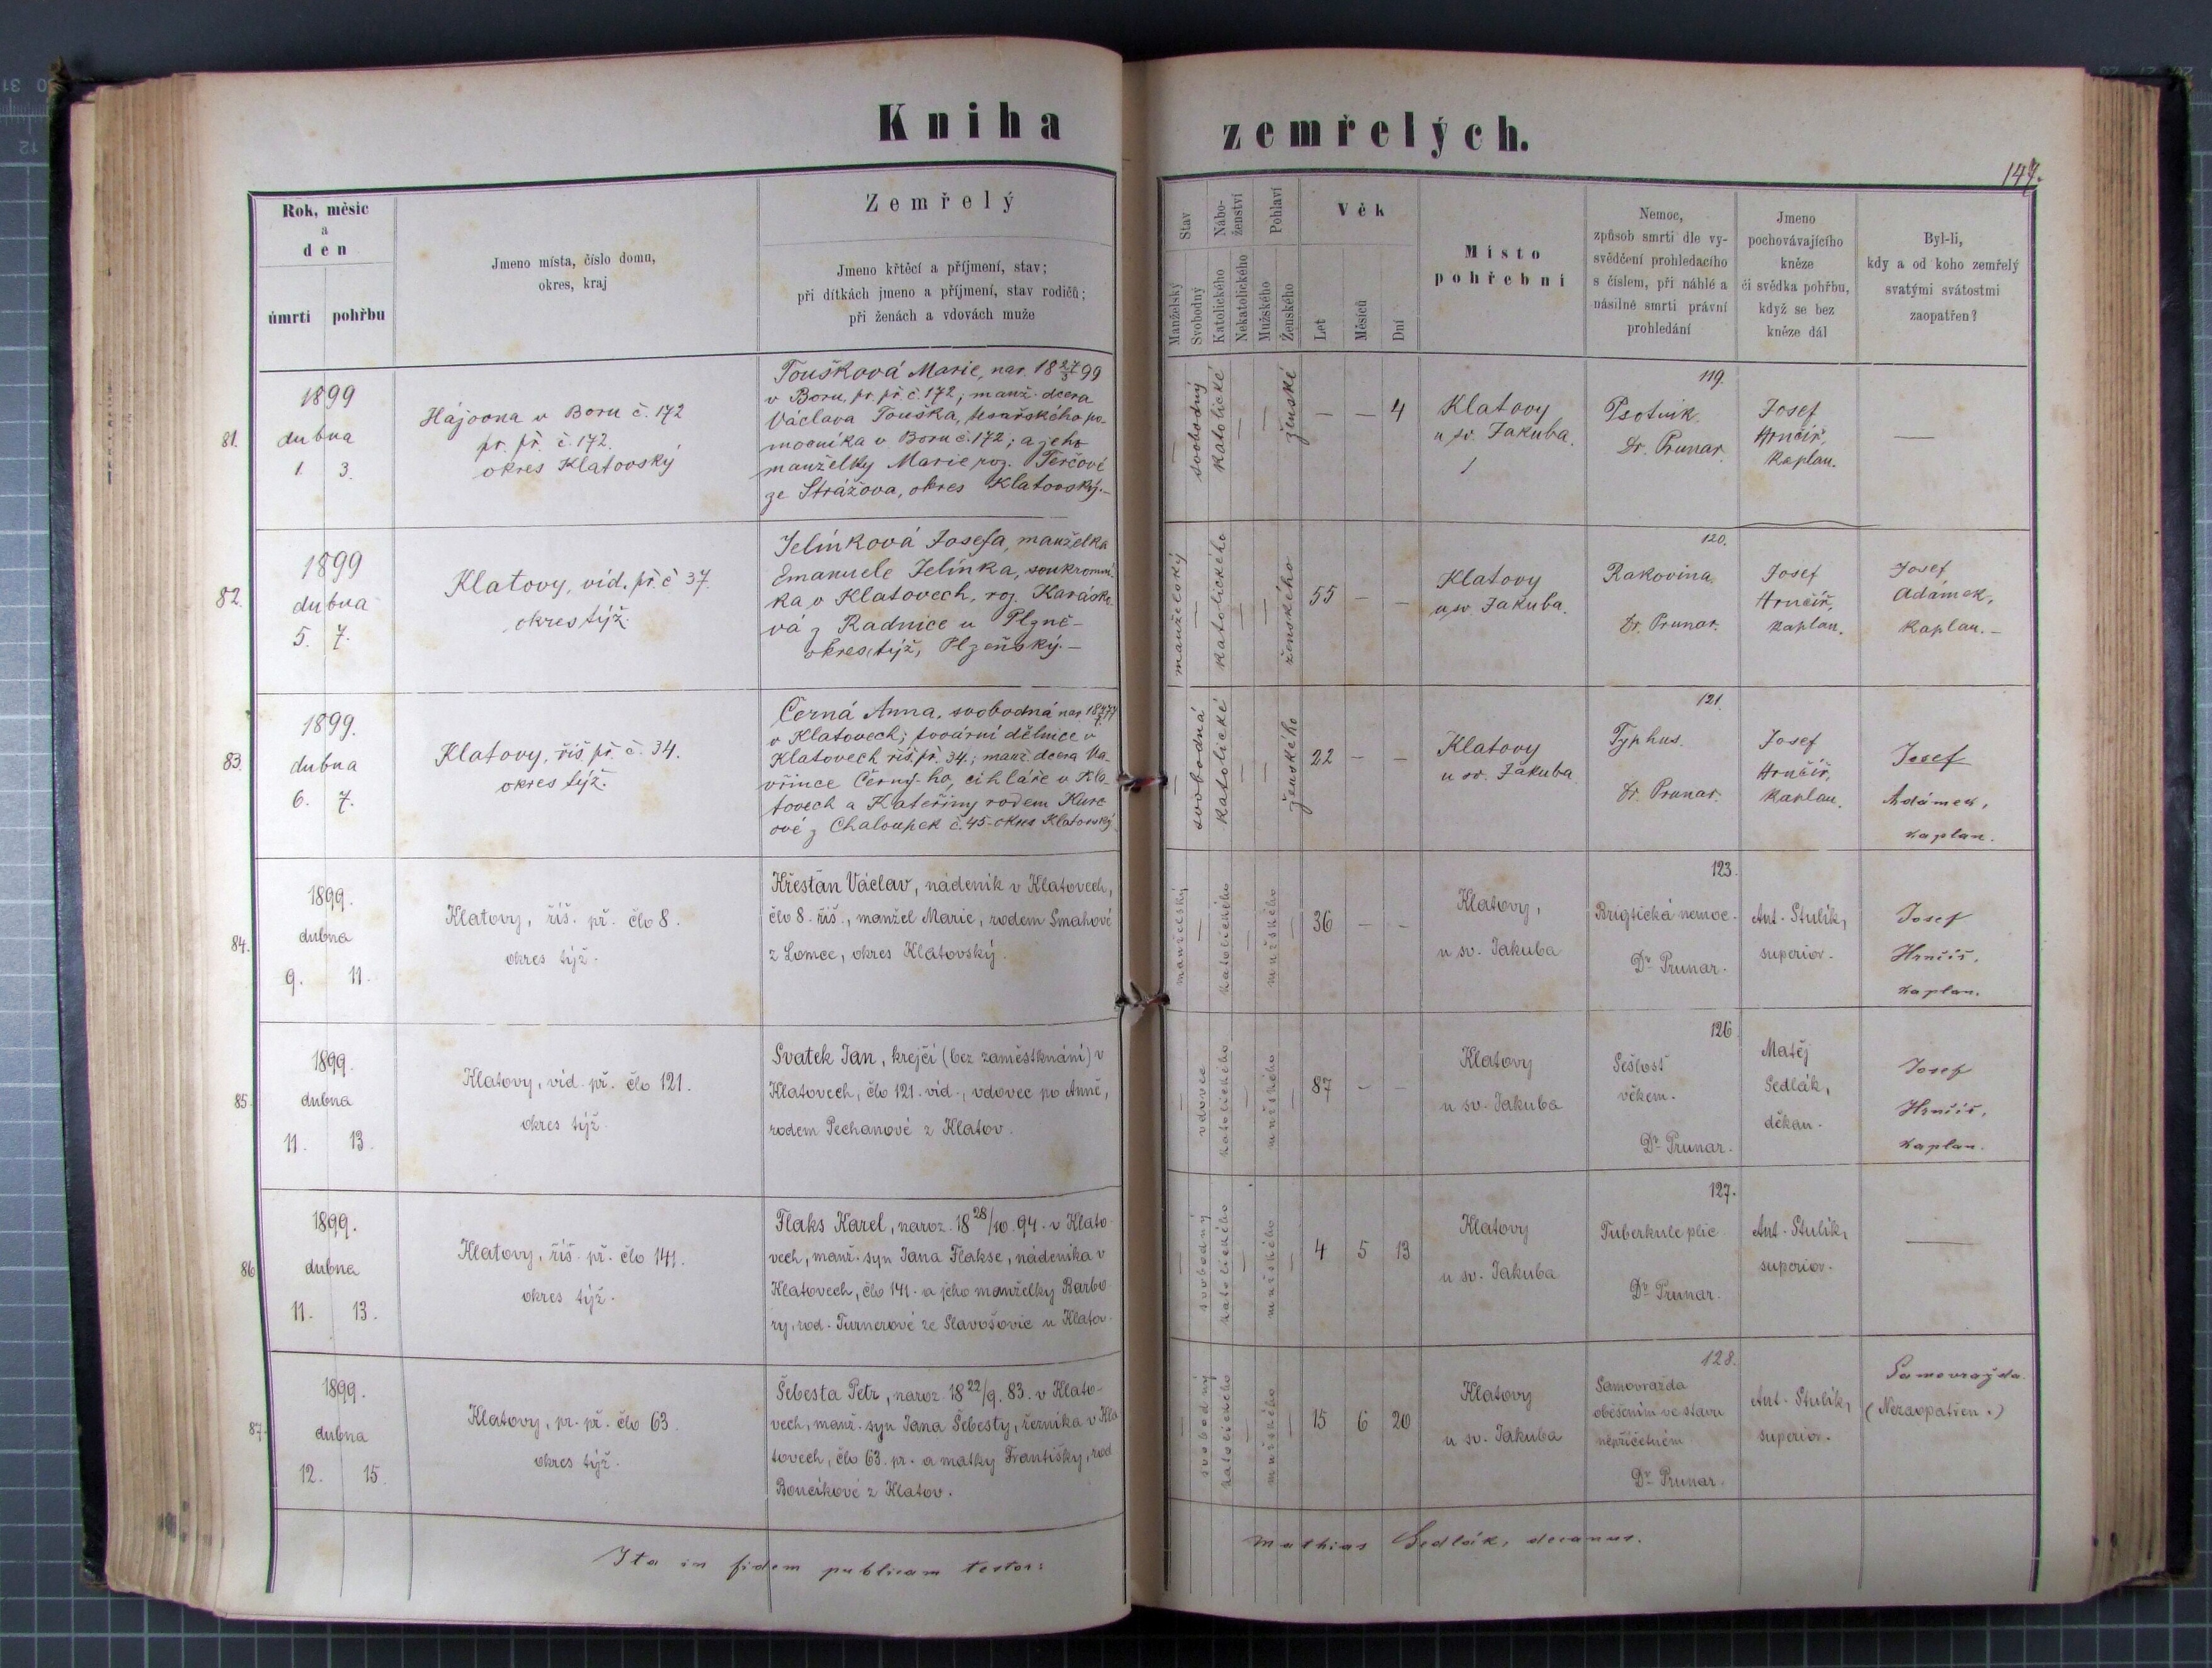 Kniha zemřelých.
147.
Rok, měsíc
a
den
úmrtí pohřbu
Jmeno místa, číslo domu,
okres, kraj
Zemřelý
Jmeno křtěcí a příjmení, stav;
při dítkách jmeno a příjmení, stav rodičů;
při ženách a vdovách muže
Stav
Manželský
Svobodný
Nábo-
ženství
Katolického
Nekatolického
Pohlaví
Mužského
Ženského
Věk
Let
Měsíců
Dní
Místo
pohřební
Nemoc,
způsob smrti dle vy-
svědčení prohledacího
s číslem, při náhlé a
násilné smrti právní
prohledání
Jmeno
pochovávajícího
kněze
či svědka pohřbu,
když se bez
kněze dál
Byl-li,
kdy a od koho zemřelý
svatými svátostmi
zaopatřen?
81.
1899
dubna
1. 3.
Hájovna v Boru č. 172
pr. př. č. 172.
okres Klatovský
Toušková Marie, nar. 18 27/3 99
v Boru, pr. př. č. 172; manž. dcera
Václava Touška, tesařského po-
mocníka v Boru č. 172; a jeho
manželky Marie roz. Terčové
ze Strážova, okres Klatovský.-
—
svobodný
katolické
—
—
ženské
— — 4
Klatovy
u sv. Jakuba.
119.
Psotník
Dr. Prunar.
Josef
Hrnčíř,
kaplan.
—
82.
1899
dubna
5. 7.
Klatovy, víd. př. č 37.
okres týž.
Jelínková Josefa, manželka
Emanuele Jelínka, soukromní-
ka v Klatovech, roz. Karásko-
vá z Radnice u Plzně-
okres, týž, Plzeňský.-
manželský
—
katolického
—
—
ženského
55 — —
Klatovy
u sv. Jakuba.
120.
Rakovina
Dr. Prunar.
Josef
Hrnčíř,
kaplan.
Josef
Adámek,
kaplan.-
83.
1899.
dubna
6. 7.
Klatovy, říš. př. č. 34.
okres týž.
Černá Anna, svobodná nar.
v Klatovech; tovární dělnice v
Klatovech říš. př. 34.; manž. dcera Va-
vřince Černý-ho, cihláře v Kla-
tovech a Kateřiny rodem Kurc
ové z Chaloupek č. 45-okres Klatovský
—
svobodná
katolické
—
—
ženského
22 — —
Klatovy
u sv. Jakuba
121.
Typhus.
Dr. Prunar.
Josef
Hrnčíř,
kaplan.
Josef
Adámek,
kaplan.
84.
1899.
dubna
9. 11.
Klatovy, říš. př. člo 8.
okres týž.
Křesťan Václav, nádeník v Klatovech,
člo 8. říš., manžel Marie, rodem Smahové
z Lomce, okres Klatovský.
manželský
—
katolického
—
mužského
—
36 — —
Klatovy,
u sv. Jakuba
123.
Brigtická nemoc.
Dr Prunar.
Ant. Stulík,
superior.
Josef
Hrnčíř,
kaplan.
85.
1899.
dubna
11. 13.
Klatovy, víd. př. člo 121.
okres týž.
Svatek Jan, krejčí (bez zaměstknání) v
Klatovech, člo 121. víd., vdovec po Anně,
rodem Pechanové z Klatov.
—
vdovec
katolického
—
mužského
—
87 — —
Klatovy
u sv. Jakuba
126
Sešlost
věkem.
Dr Prunar.
Matěj
Sedlák,
děkan.
Josef
Hrnčíř,
kaplan.
86
1899.
dubna
11. 13.
Klatovy, říš. př. člo 141.
okres týž.
Flaks Karel, naroz. 18 28/10. 94. v Klato-
vech, manž. syn Jana Flakse, nádeníka v
Klatovech, člo 141. a jeho manželky Barbo-
ry, rod. Turnerové ze Slavošovic u Klatov.
—
svobodný
katolického
—
mužského
—
4 5 13
Klatovy
u sv. Jakuba
127.
Tuberkule plic
Dr Prunar.
Ant. Stulík,
superior.
—
87.
1899.
dubna
12. 15.
Klatovy, pr. př. člo 63.
okres týž.
Šebesta Petr, naroz. 18 22/9. 83. v Klato-
vech, manž. syn Jana Šebesty, řezníka v Kla
tovech, člo 63. pr. a matky Františky, rod
Boucíkové z Klatov.
—
svobodný
katolického
—
mužského
—
15 6 20
Klatovy
u sv. Jakuba
128.
Samovražda
oběšením ve stavu
nepříčetném
Dr Prunar.
Ant. Stulík,
superior.
Samovražda.
(Nezaopatřen.)
Ita in fidem publicam testor:
Mathias Sedlák, decanus.